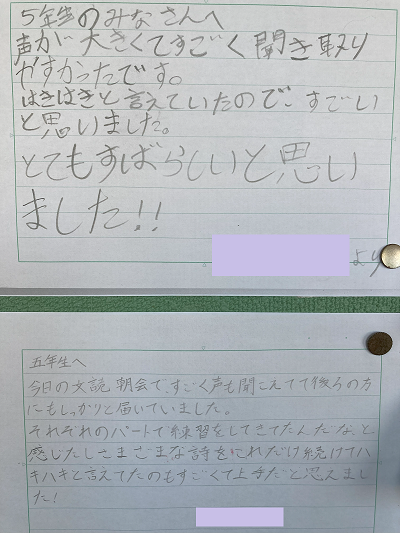 5年生のみなさんへ
声が大きくてすごく聞き取り
やすかったです。
はきはきと言えていたので、すごい
と思いました。
とてもすばらしいと思い
ました!!
より
五年生へ
今日の文読朝会で、すごく声も聞こえてて後ろの方
にもしっかりと届いていました。
それぞれのパートで練習をしてきてたんだな、と
感じたしさまざまな詩をこれだけ続けてハ
キハキと言えてたのもすごくて上手だと思えまし
た!